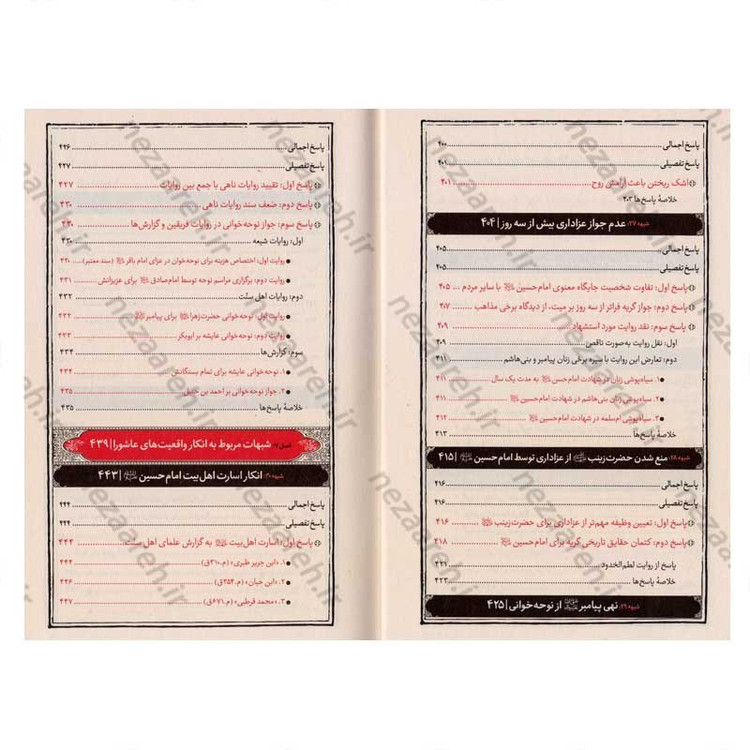 پاسخ اجمالی ................ ۴۰۰
پاسخ تفصیلی ................ ۴۰۱
اشک ریختن باعث آرامش روح ................ ۴۰۱
خلاصۀ پاسخ‌ها ۴۰۳
شبهه ۲۷: عدم جواز عزاداری بیش از سه روز | ۴۰۴
پاسخ اجمالی ................ ۴۰۵
پاسخ تفصیلی ................ ۴۰۵
پاسخ اول: تفاوت شخصیت جایگاه معنوی امام حسین با سایر مردم ... ۴۰۵
پاسخ دوم: جواز گریه فراتر از سه روز بر میت، از دیدگاه برخی مذاهب ۴۰۷
پاسخ سوم: نقد روایت مورد استشهاد ................ ۴۰۹
اول: نقل روایت به‌صورت ناقص ................ ۴۰۹
دوم: تعارض این روایت با سیره برخی زنان پیامبر و بنی‌هاشم ... ۴۱۱
۱. سیاه‌پوشی زنان در شهادت امام حسن به مدت یک سال ۴۱۱
۲. سیاه‌پوشی زنان بنی‌هاشم در شهادت امام حسین ... ۴۱۱
۳. سیاه‌پوشی ام‌سلمه در شهادت امام حسین ... ۴۱۲
خلاصۀ پاسخ‌ها ................ ۴۱۳
شبهه ۲۸: منع شدن حضرت زینب از عزاداری توسط امام حسین | ۴۱۵
پاسخ اجمالی ................ ۴۱۶
پاسخ تفصیلی ................ ۴۱۶
پاسخ اول: تعیین وظیفه مهم‌تر از عزاداری برای حضرت زینب ... ۴۱۶
پاسخ دوم: کتمان حقایق تاریخی گریه برای امام حسین ... ۴۱۸
پاسخ از روایت لطم‌الخدود ................ ۴۲۲
خلاصۀ پاسخ‌ها ................ ۴۲۳
شبهه ۲۹: نهی پیامبر از نوحه خوانی | ۴۲۵
پاسخ اجمالی ................ ۴۲۶
پاسخ تفصیلی ................ ۴۲۷
پاسخ اول: تقیید روایات ناهی با جمع بین روایات ... ۴۲۷
پاسخ دوم: ضعف سند روایات ناهی ................ ۴۳۰
پاسخ سوم: جواز نوحه‌خوانی در روایات فریقین و گزارش‌ها ... ۴۳۰
اول: روایات شیعه ................ ۴۳۰
روایت اول: اختصاص هزینه برای نوحه‌خوان در عزای امام باقر (سند معتبر) ... ۴۳۰
روایت دوم: برگزاری مراسم نوحه توسط امام صادق برای عزیزانش ... ۴۳۱
دوم: روایات اهل سنّت ................ ۴۳۲
روایت اول: نوحه‌خوانی حضرت زهرا برای پیامبر ... ۴۳۲
روایت دوم: نوحه‌خوانی عایشه بر ابوبکر ................ ۴۳۳
سوم: گزارش‌ها ................ ۴۳۴
۱. نوحه‌خوانی عایشه برای تمام بستگانش ................ ۴۳۴
۲. جواز نوحه‌خوانی بر احمد بن حنبل ................ ۴۳۵
خلاصۀ پاسخ‌ها ................ ۴۳۵
فصل ۷: شبهات مربوط به انکار واقعیت‌های عاشورا | ۴۳۹
شبهه ۳۰: انکار اسارت اهل بیت امام حسین | ۴۴۳
پاسخ اجمالی ................ ۴۴۴
پاسخ تفصیلی ................ ۴۴۴
پاسخ اول: اسارت اهل‌بیت به گزارش علمای اهل سنّت ... ۴۴۴
۱. «ابن جریر طبری» (م.۳۱۰ق) ................ ۴۴۴
۲. «ابن حبان» (م.۳۵۴ق) ................ ۴۴۶
۳. «محمد قرطبی» (م.۶۷۱ق) ................ ۴۴۷
nezaareh.ir